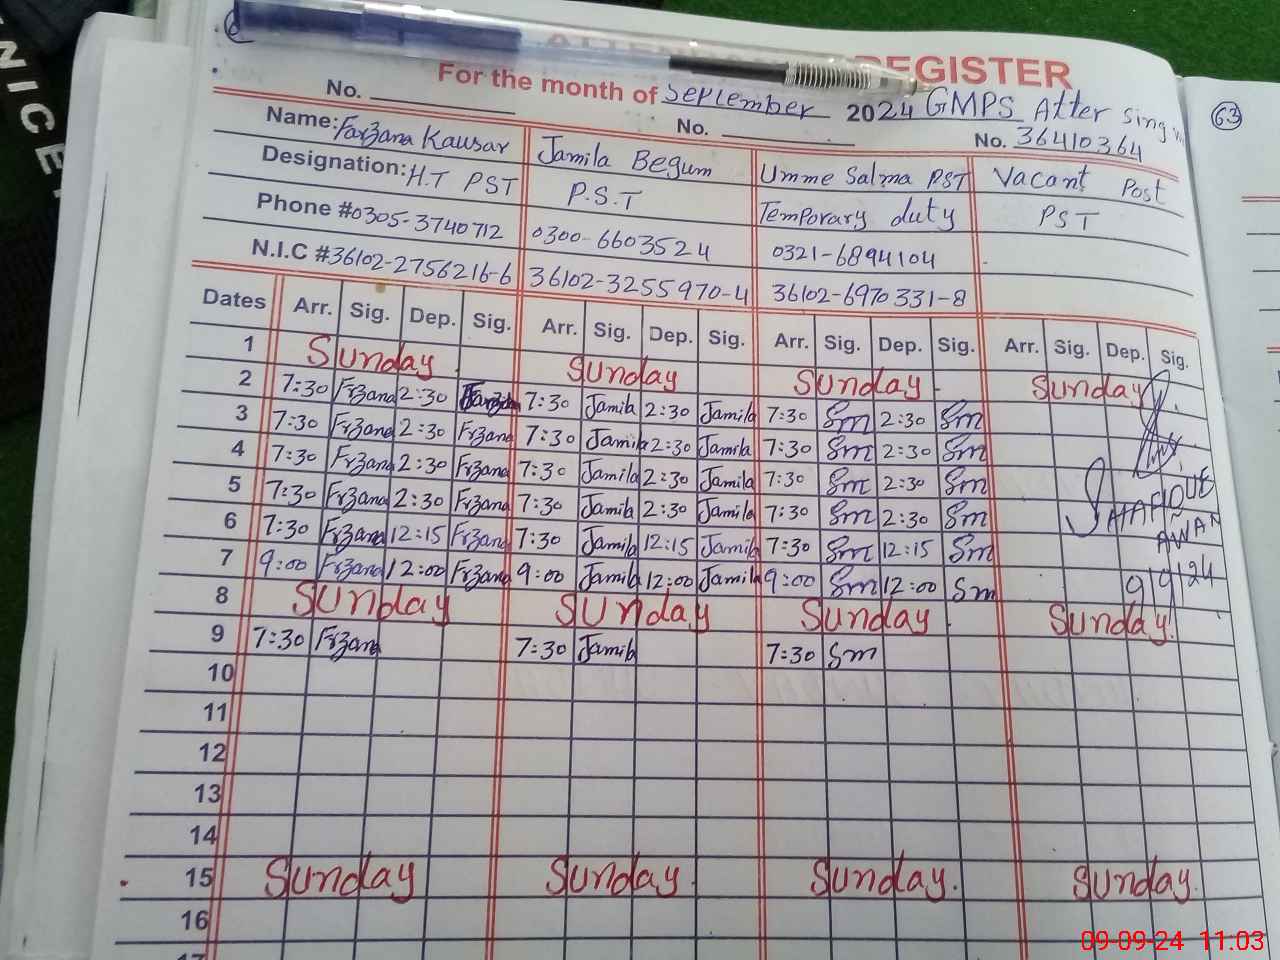 ATTENDANCE REGISTER
For the month of September 2024 GMPS Atter Sing
63
No. No. No. 36410364
Name: Farzana Kausar Jamila Begum Umme Salma PST Vacant Post
Designation: H.T PST P.S.T Temporary duty PST
Phone # 0305-3740712 0300-6603524 0321-6894104
N.I.C # 36102-2756216-6 36102-3255970-4 36102-6970331-8
Dates Arr. Sig. Dep. Sig. Arr. Sig. Dep. Sig. Arr. Sig. Dep. Sig. Arr. Sig. Dep. Sig.
1 Sunday Sunday Sunday Sunday
2 7:30 Frzana 2:30 Farzana 7:30 Jamila 2:30 Jamila 7:30 Sm 2:30 Sm
3 7:30 Frzana 2:30 Frzana 7:30 Jamila 2:30 Jamila 7:30 Sm 2:30 Sm
4 7:30 Frzana 2:30 Frzana 7:30 Jamila 2:30 Jamila 7:30 Sm 2:30 Sm
5 7:30 Frzana 2:30 Frzana 7:30 Jamila 2:30 Jamila 7:30 Sm 2:30 Sm SHAFIQUE
6 7:30 Frzana 12:15 Frzana 7:30 Jamila 12:15 Jamila 7:30 Sm 12:15 Sm AWAN
7 9:00 Frzana 12:00 Frzana 9:00 Jamila 12:00 Jamila 9:00 Sm 12:00 Sm 9/9/24
8 Sunday Sunday Sunday Sunday
9 7:30 Frzana 7:30 Jamila 7:30 Sm
10
11
12
13
14
15 Sunday Sunday Sunday Sunday
16
17
09-09-24 11:03